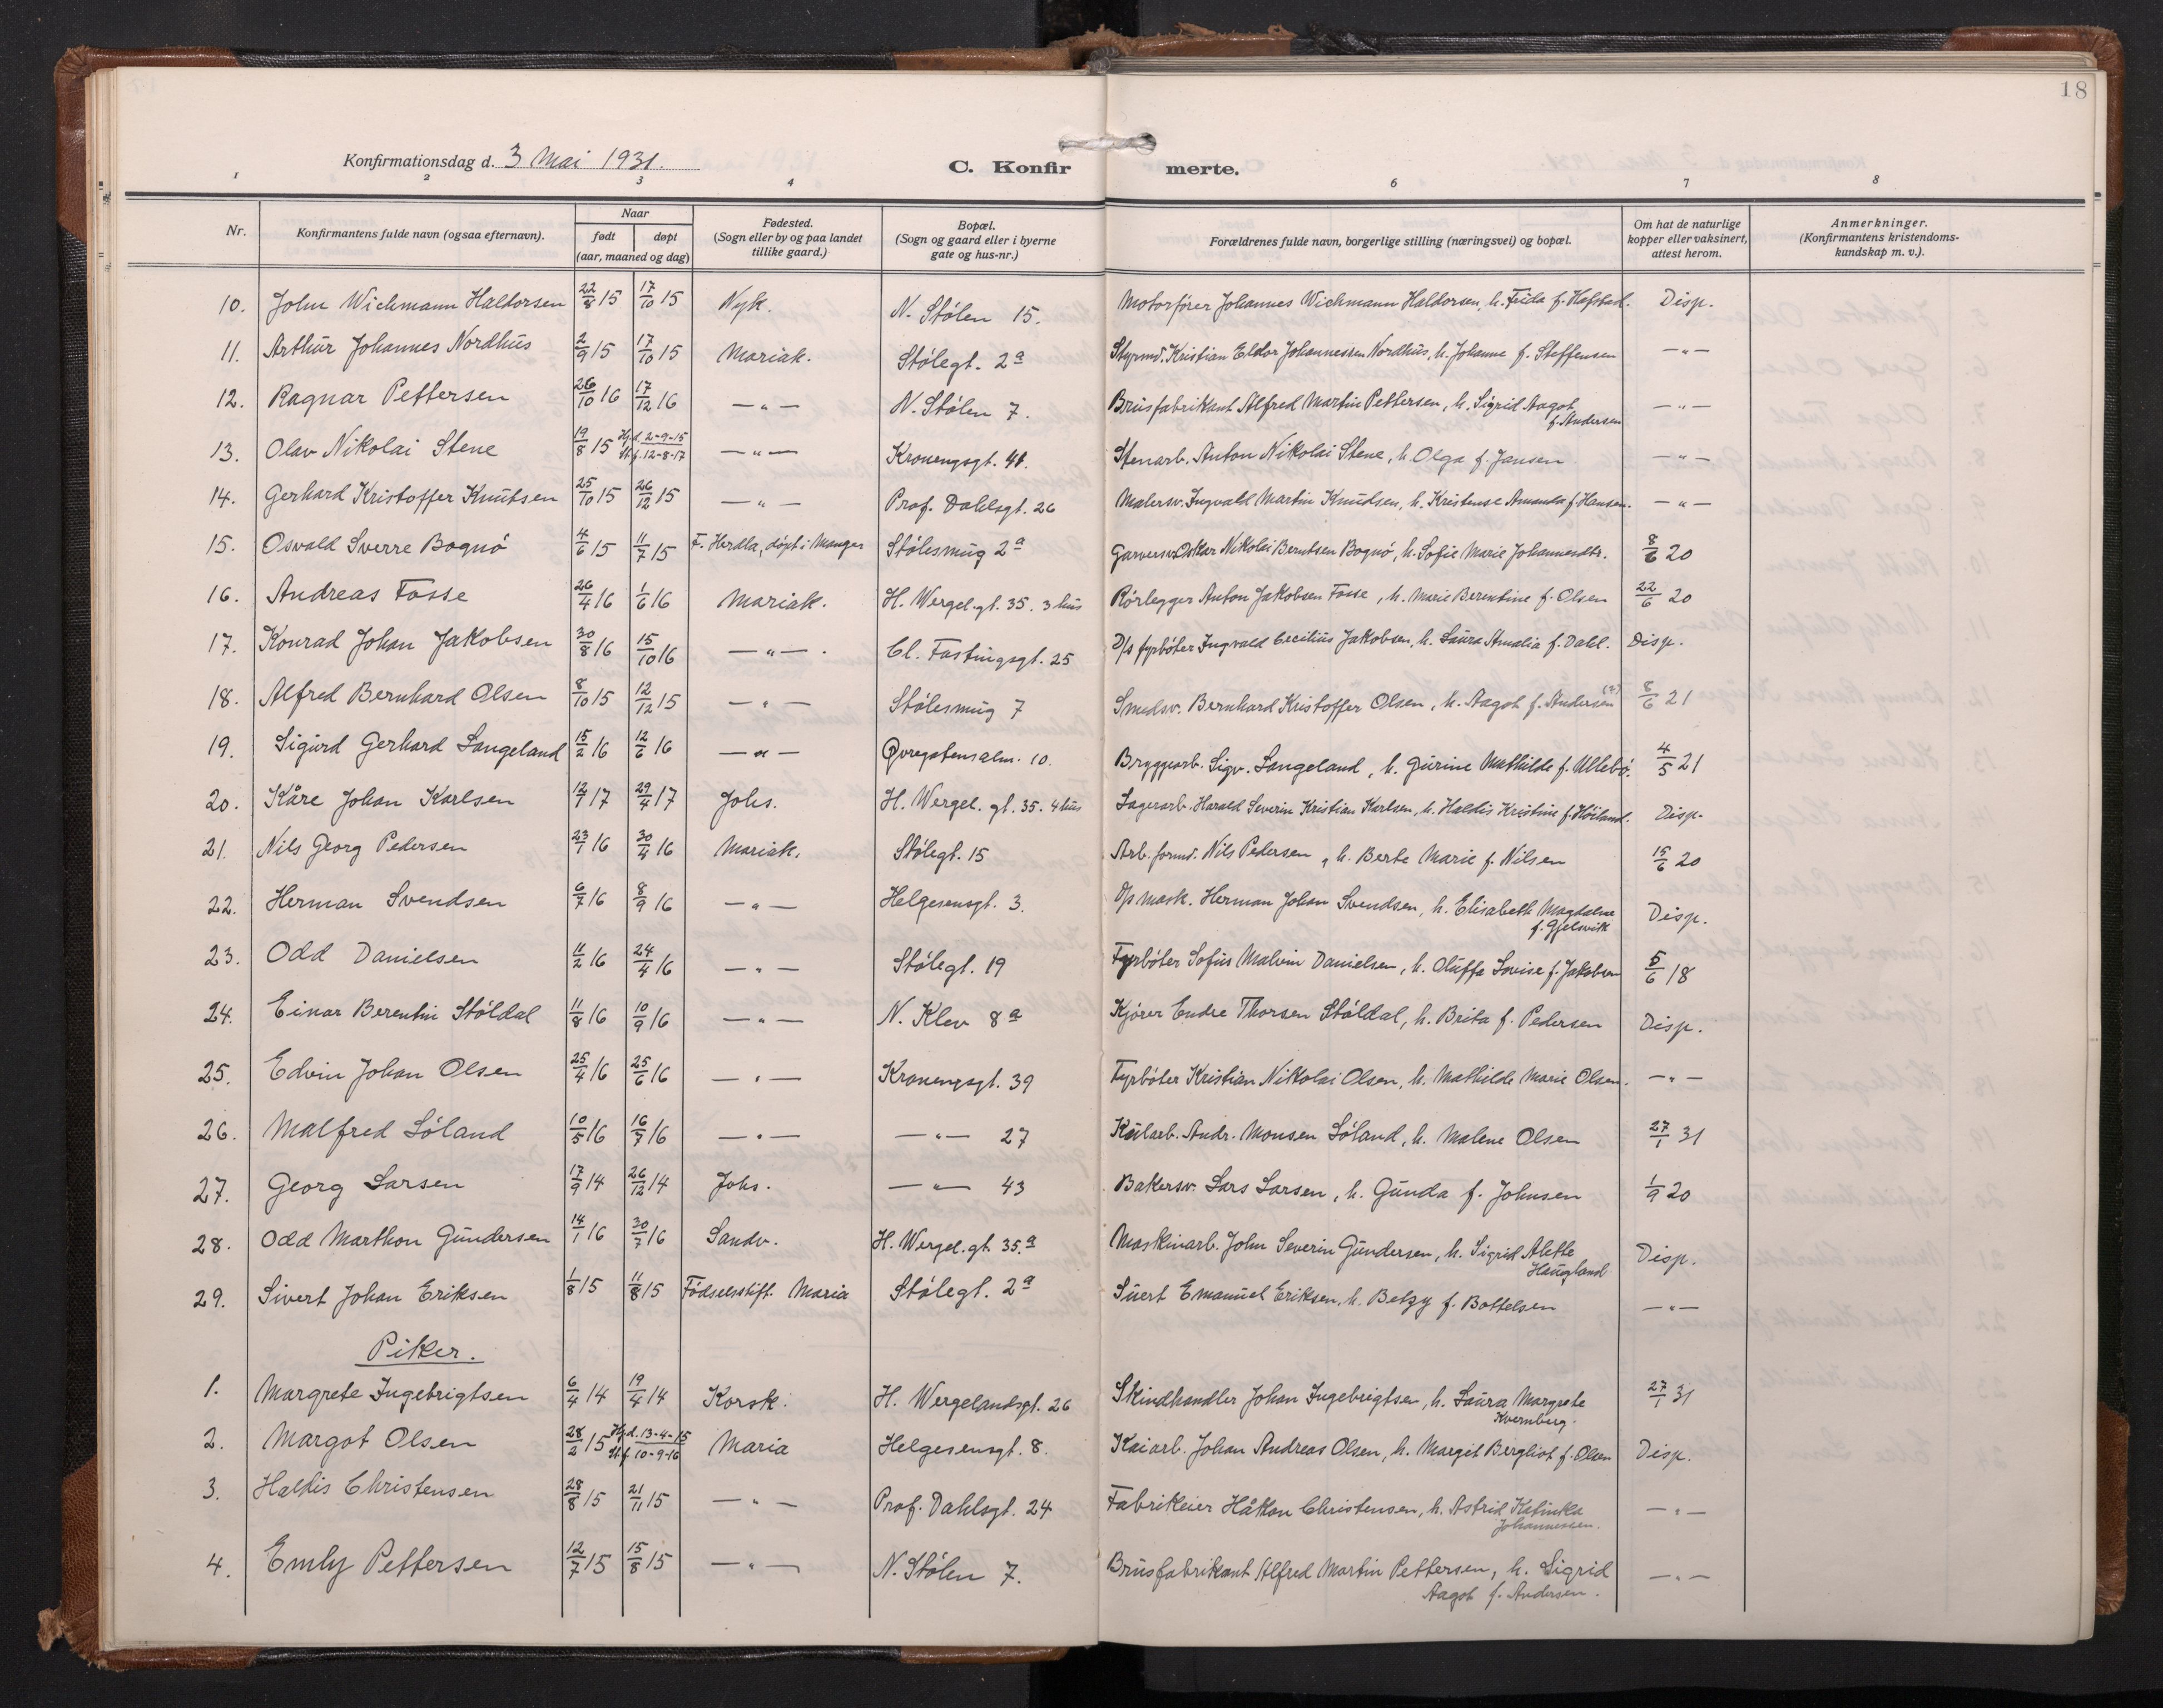 18
Konfirmationsdag d. 3 Mai 1931.
C. Konfirmerte.
1 2 3 4 6 7 8
Nr. Konfirmantens fulde navn (ogsaa efternavn). Naar født døpt (aar, maaned og dag) Fødested. (Sogn eller by og paa landet tillike gaard.) Bopæl. (Sogn og gaard eller i byerne gate og hus-nr.) Forældrenes fulde navn, borgerlige stilling (næringsvei) og bopæl. Om hat de naturlige kopper eller vaksinert, attest herom. Anmerkninger. (Konfirmantens kristendoms-kundskap m. v.).
10. John Wichmann Haldorsen 22/8 15 17/10 15 Nyk. N. Stølen 15. Motorfører Johannes Wichmann Haldorsen, h. Frida f. Hafstad. Disp.
11. Arthur Johannes Nordhus 2/9 15 17/10 15 Mariak. Stølegt. 2a Styrmd. Kristian Eldor Johannessen Nordhus, h. Johanne f. Steffensen —"—
12. Ragnar Pettersen 26/10 16 17/12 16 —"— N. Stølen 7. Brusfabrikant Alfred Martin Pettersen, h. Sigrid Aagot f. Andersen —"—
13. Olav Nikolai Stene 19/8 15 Hjd. 2-9-15 St.f. 12-8-17 —"— Kroneng​sgt. 41. Stenarb. Anton Nikolai Stene, h. Olga f. Jansen —"—
14. Gerhard Kristoffer Knutsen 25/10 15 26/12 15 —"— Prof. Dahlsgt. 26 Malersv. Ingvald Martin Knudsen, h. Kristense Amanda f. Hansen. —"—
15. Osvald Sverre Bognø 4/6 15 11/7 15 F. Herdla, døpt i Manger Stølesmug 2a Garversv. Oskar Nikolai Berntsen Bognø, h. Sofie Marie Johannesdtr. 8/6 20
16. Andreas Fosse 26/4 16 1/6 16 Mariak. H. Wergel. gt. 35. 3 hus Rørlegger Anton Jakobsen Fosse, h. Marie Berentine f. Olsen 22/6 20
17. Konrad Johan Jakobsen 30/8 16 15/10 16 —"—. Cl. Fastingsgt. 25 D/s fyrbøter Ingvald Cecilius Jakobsen, h. Laura Amalia f. Dahl. Disp.
18. Alfred Bernhard Olsen 8/10 15 12/12 15 —"— Stølesmug 7 Smedsv. Bernhard Kristoffer Olsen, h. Aagot f. Andersen (?) 8/6 21
19. Sigurd Gerhard Langeland 15/2 16 12/6 16 —"— Øvregatensalm. 10. Bryggearb. Sigv. Langeland, h. Gurine Mathilde f. Ullebø. 4/5 21
20. Kåre Johan Karlsen 12/1 17 29/4 17 Johs. H. Wergel. gt. 35. 4 hus Lagerarb. Harald Severin Kristian Karlsen, h. Haldis Kristine f. Høiland. Disp.
21. Nils Georg Pedersen 23/1 16 30/4 16 Mariak. Stølegt. 15 Arb. formd. Nils Pedersen, h. Berte Marie f. Nilsen 15/6 20
22. Herman Svendsen 6/7 16 8/9 16 —"— Helgesensgt. 3. D/s mask. Herman Johan Svendsen, h. Elisabeth Magdalene f. Gjelsvik Disp.
23. Odd Danielsen 11/2 16 24/4 16 —"— Stølegt. 19 Fyrbøter Sofus Malvin Danielsen, h. Oluffa Lovise f. Jakobsen 5/6 18
24. Einar Berentin Støldal 11/8 16 10/9 16 —"— N. Klev 8a Kjører Endre Thorsen Støldal, h. Brita f. Pedersen Disp.
25. Edvin Johan Olsen 25/4 16 25/6 16 —"— Kronengsgt. 39 Fyrbøter Kristian Nikolai Olsen, h. Mathilde Marie Olsen. —"—
26. Malfred Søland 10/5 16 16/7 16 —"— —"— 27 Kularb. Andr. Monsen Søland, h. Malene Olsen 27/1 31
27. Georg Larsen 17/9 14 26/12 14 Johs. —"— 43 Bakersv. Lars Larsen, h. Gunda f. Johnsen 1/9 20
28. Odd Marthon Gundersen 14/1 16 30/7 16 Sandv. H. Wergel. gt. 35.a Maskinarb. John Severin Gundersen, h. Sigrid Alette Haugland Disp.
29. Sivert Johan Eriksen 1/8 15 11/8 15 Fødselsstift. Maria Stølegt. 2a Sivert Emanuel Eriksen, h. Betzy f. Bottelsen —"—
Piker.
1. Margrete Ingebrigtsen 6/4 14 19/4 14 Korsk. H. Wergelandsgt. 26 Skindhandler Johan Ingebrigtsen, h. Laura Margrete Kvernberg. 27/1 31
2. Margot Olsen 28/2 15 Hjd. 13-4-15 St.f. 10-9-16 Maria Helgesensgt. 8. Kaiarb. Johan Andreas Olsen, h. Margit Bergliot f. Olsen Disp.
3. Haldis Christensen 28/8 15 21/11 15 —"— Prof. Dahlsgt. 24 Fabrikeier Håkon Christensen, h. Astrid Katinka Johannessen. —"—
4. Emly Pettersen 12/7 15 15/8 15 —"— N. Stølen 7. Brusfabrikant Alfred Martin Pettersen, h. Sigrid Aagot f. Andersen. —"—